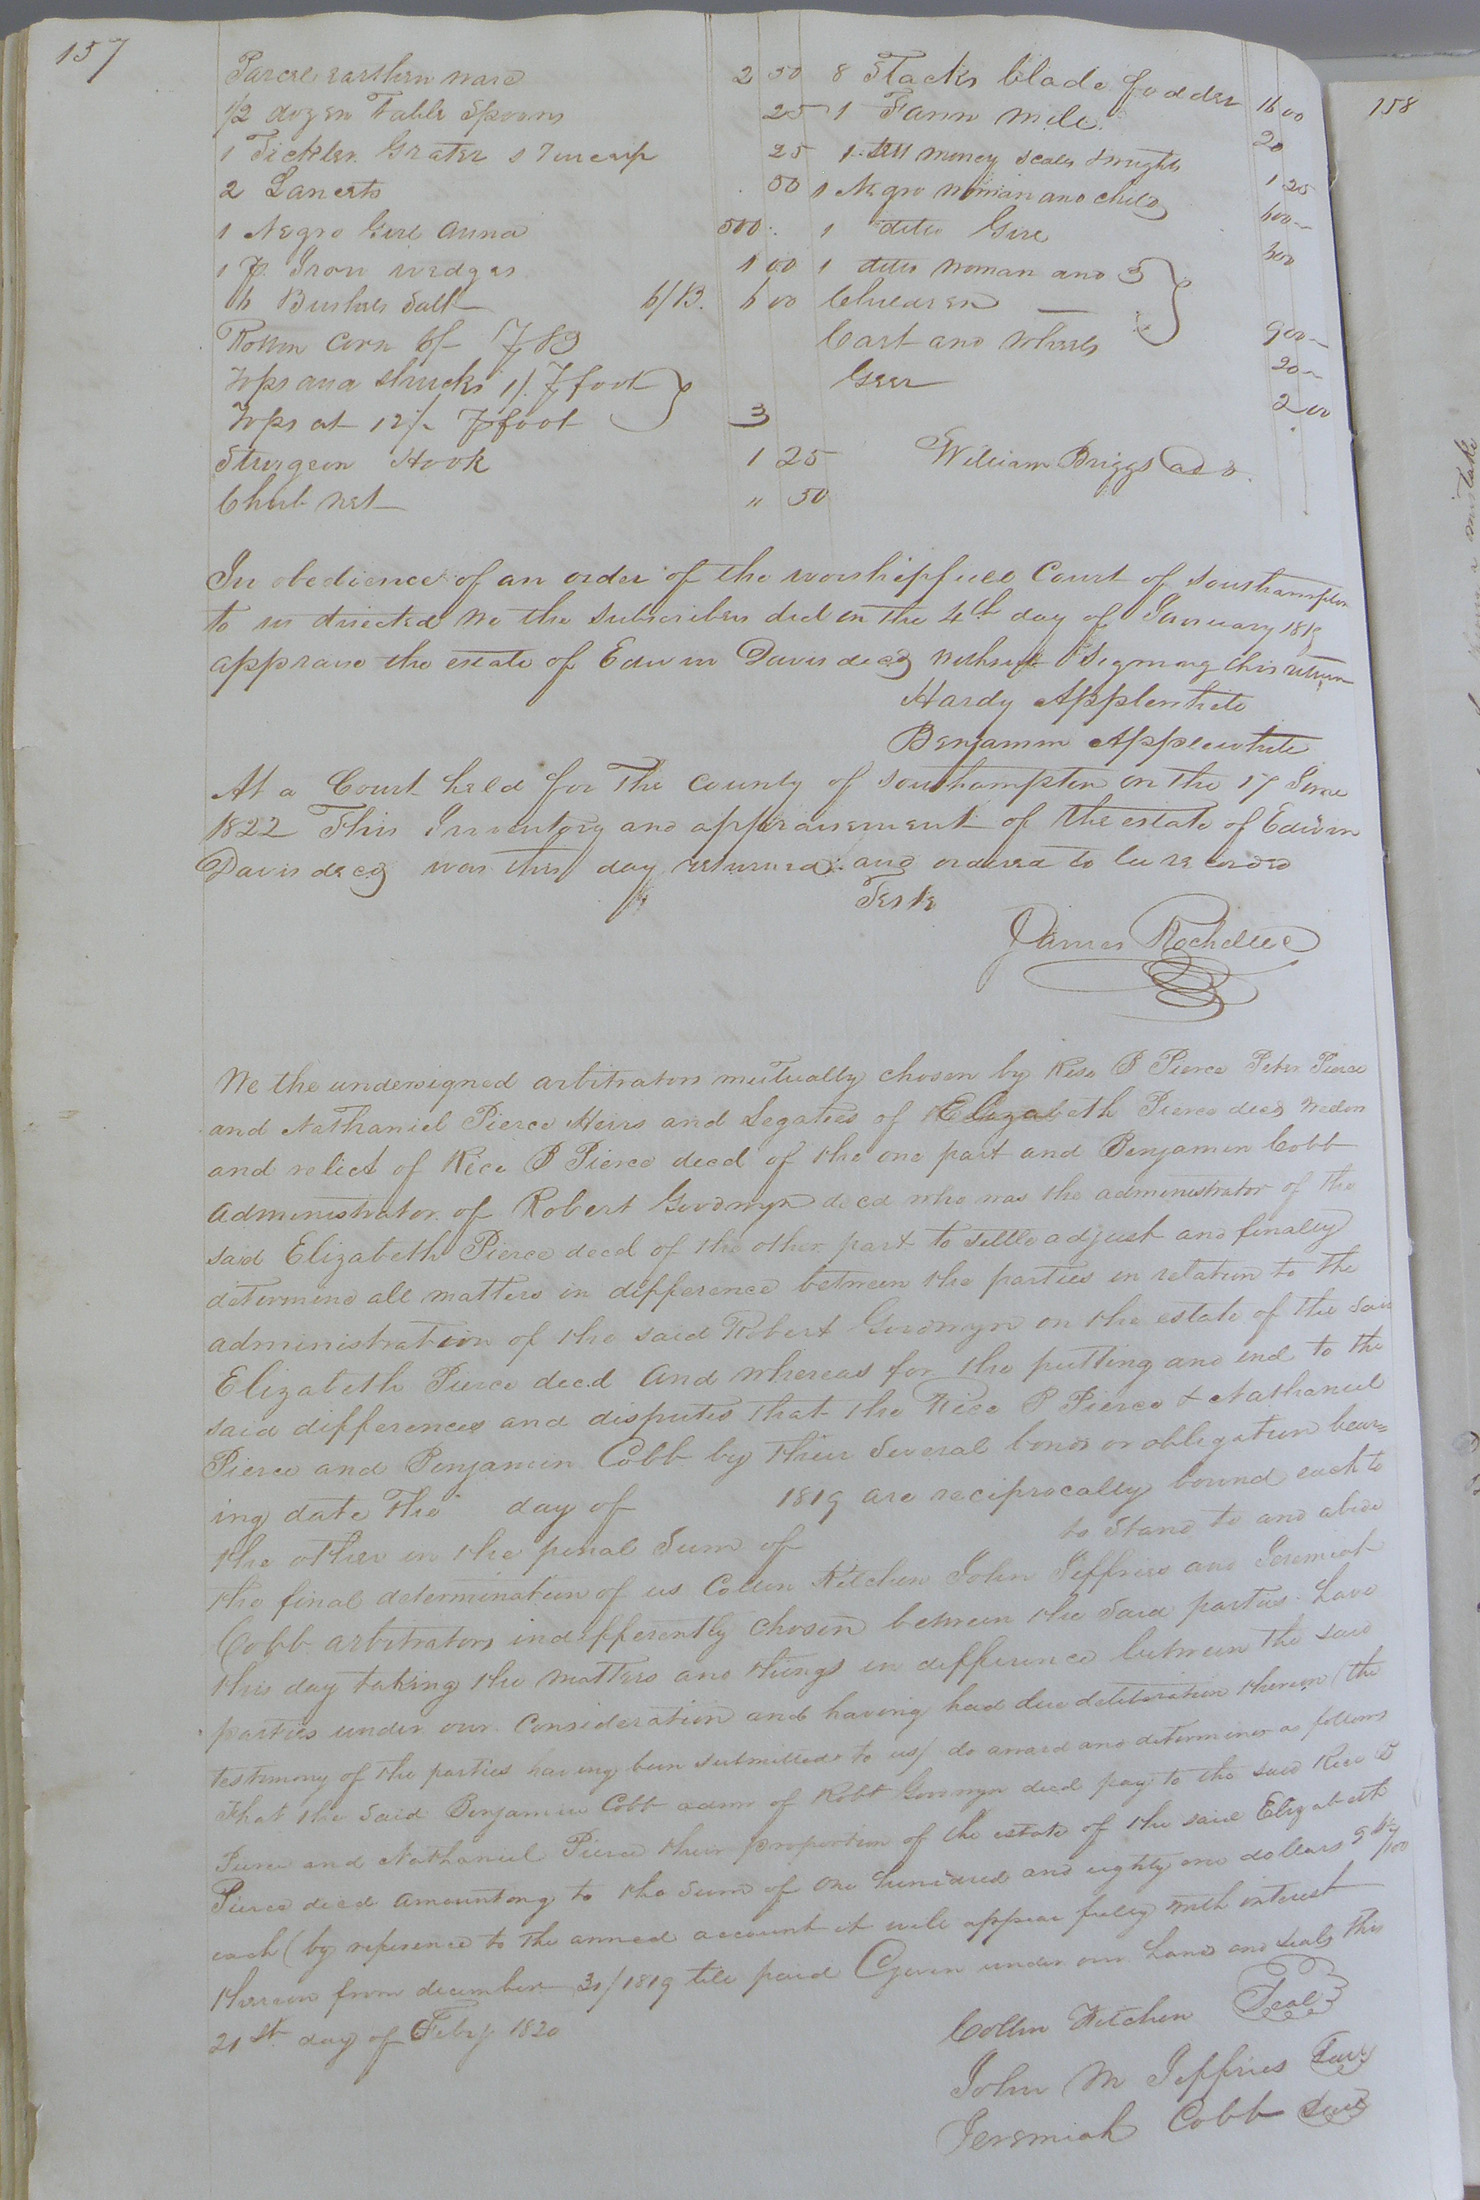 157
Parcel earthen ware 2 50
1/2 dozen Table Spoons 25
1 Tickler Grater & Tin cup 25
2 Lancets 50
1 Negro Girl Anna 500
1 pr Iron wedges 1 00
Bushels Salt 00
Rotten corn
Tops and shucks 1/. foot
Tops at 12/ foot 3
Sturgeon Hook 1 25
Chub net " 50
8 Stacks blade fodder 16 00
1 Farm mule 20
1 sett money scales & weights 1 25
1 Negro woman and child 600
1 ditto Girl 300
1 ditto woman and 3
Children 900
Cart and wheels 20
Geer 2 00
William Briggs ad r.
In obedience of an order of the worshipfull Court of Southampton
to us directed We the Subscribers did on the 4th day of January 1819
appraise the estate of Edwin Davis decd witness signing this return
Hardy Applewhite
Benjamin Applewhite
At a Court held for the county of Southampton on the 17 June
1822 This Inventory and appraisement of the estate of Edwin
Davis decd was this day returned and ordered to be recorded
Teste
James Rochelle
We the undersigned arbitrators mutually chosen by Rice B Pierce Peter Pierce
and Nathaniel Pierce Heirs and Legatees of Elizabeth Pierce decd Wedow
and relict of Rice B Pierce decd of the one part and Benjamin Cobb
administrator of Robert Goodwyn decd who was the administrator of the
said Elizabeth Pierce decd of the other part to settle adjust and finally
determine all matters in difference between the parties in relation to the
administration of the said Robert Goodwyn on the estate of the said
Elizabeth Pierce decd And whereas for the putting and end to the
said differences and disputes that the Rice B Pierce & Nathaniel
Pierce and Benjamin Cobb by their Several bonds or obligation bear=
ing date the day of 1819 are reciprocally bound each to
the other in the penal Sum of to Stand to and abide
the final determination of us Collin Kitchen John Jeffries and Jeremiah
Cobb arbitrators indifferently chosen between the said parties have
this day taking the matters and things in difference between the said
parties under our consideration and having had due deliberation thereon (the
testimony of the parties having been submitted to us) do award and determine as follows
That the Said Benjamin Cobb admr of Robt Goodwyn decd pay to the said Rice B
Pierce and Nathaniel Pierce their proportion of the estate of the said Elizabeth
Pierce decd amounting to the Sum of one hundred and eighty one dollars /100
each (by reference to the annexed account it will appear fully with interest
thereon from december 31/1819 till paid Given under our hands and seals this
21st day of Feby 1820
Collin Kitchen Seal
John M Jeffries Seal
Jeremiah Cobb Seal
158
mistake